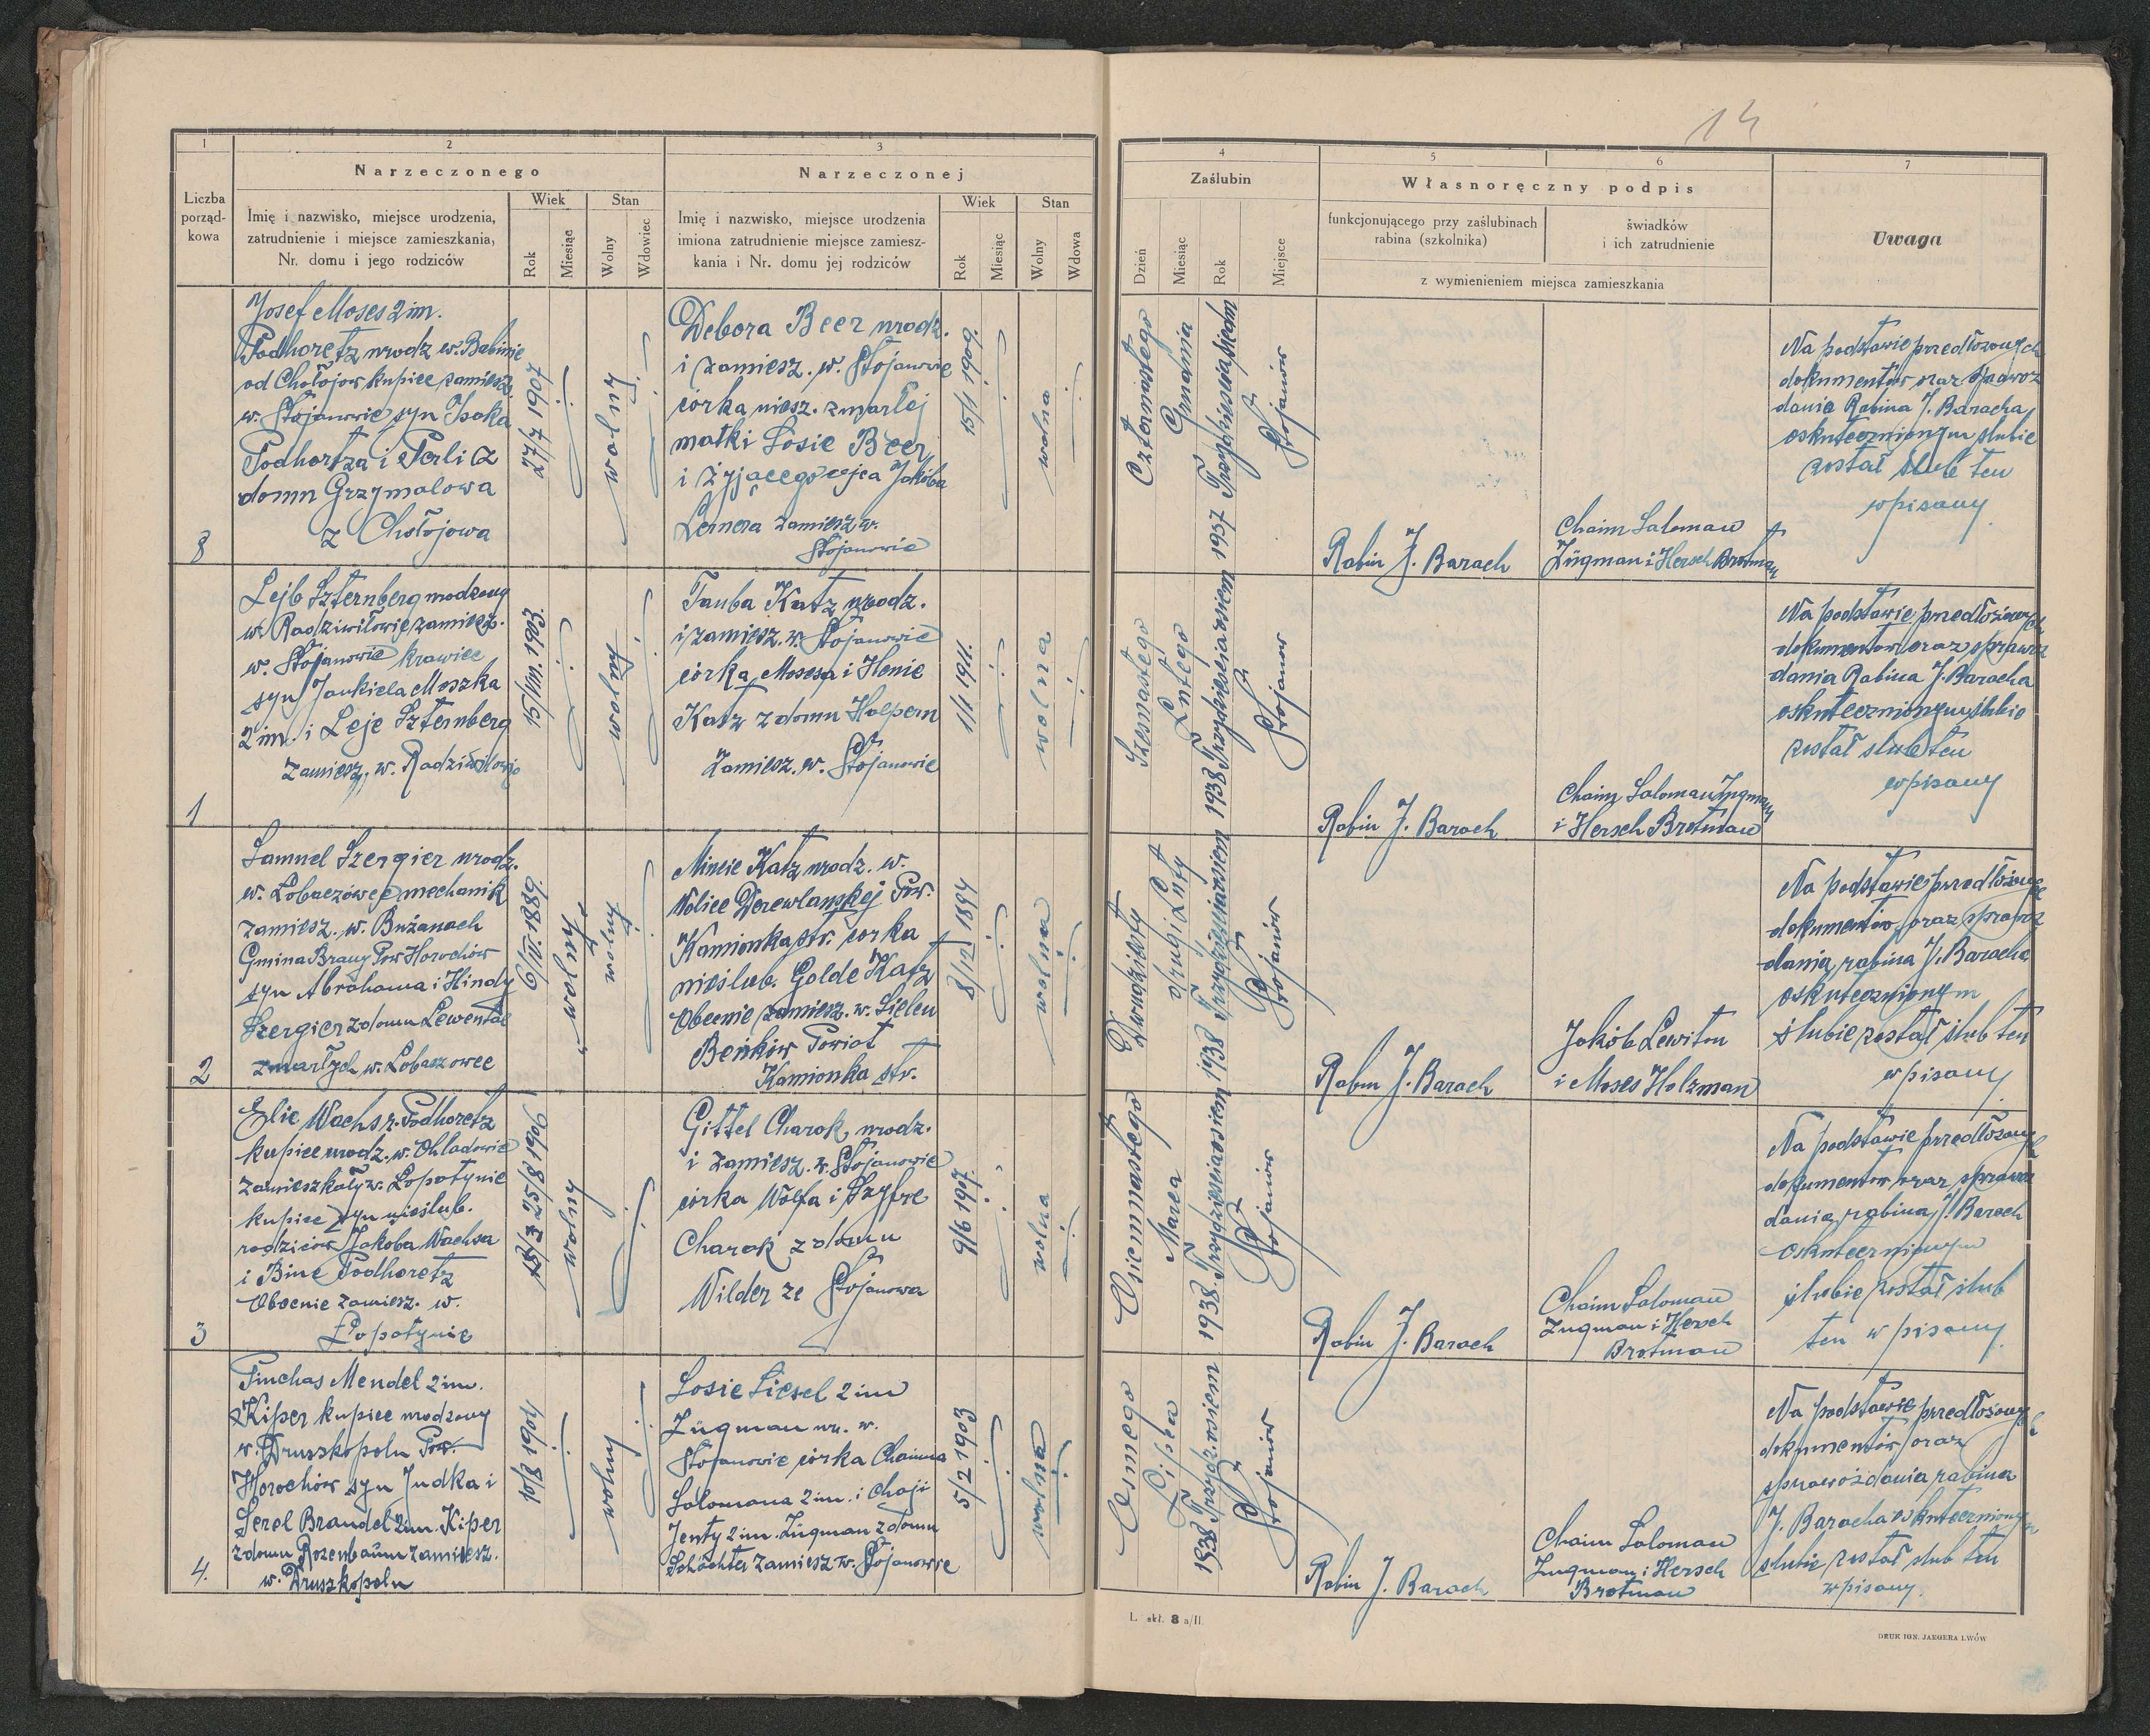 14
1
2
3
4
5
6
7
Liczba
porząd-
kowa
Narzeczonego
Imię i nazwisko, miejsce urodzenia,
zatrudnienie i miejsce zamieszkania,
Nr. domu i jego rodziców
Wiek
Rok
Miesiąc
Stan
Wolny
Wdowiec
Narzeczonej
Imię i nazwisko, miejsce urodzenia
imiona zatrudnienie miejsce zamiesz-
kania i Nr. domu jej rodziców
Wiek
Rok
Miesiąc
Stan
Wolny
Wdowa
Zaślubin
Dzień
Miesiąc
Rok
Miejsce
Własnoręczny podpis
funkcjonującego przy zaślubinach
rabina (szkolnika)
świadków
i ich zatrudnienie
z wymienieniem miejsca zamieszkania
Uwaga
8
Josef Moses 2 im.
Podhoretz urodz w. Babinie
od Chołojow kupiec zamiesz.
w. Stojanowie syn Isaka
Podhortza i Perli z
domu Grzymalowa
z Chołojowa
27/7 1907
wolny
Debora Beer urodz.
i zamiesz. w. Stojanowie
córka niesz. zmarłej
matki Losie Beer
i żyjącego ojca Jakóba
Lernera zamiesz w.
Stojanowie
15/1 1909.
wolna
Czternastego
Grudnia
1937 Trzydziestasiedm
Stojanów
Rabin J. Barach
Chaim Saloman
Zügman i Hersch Brotman
Na podstawie przedłożonych
dokumentów oraz sprawoz
dania Rabina J. Baracha
oskutecznionym slubie
został slub ten
wpisany
1
Lejb Szternberg urodzony
w. Radziwiłowie zamiesz.
w. Stojanowie krawiec
syn Jankiela Moszka
2 im. i Leje Szternberg
zamiesz. w. Radziwiłowie
15/VIII. 1903.
wolny
Tauba Katz urodz.
i zamiesz. w. Stojanowie
córka Mosesa i Henie
Katz z domu Halpern
zamiesz. w. Stojanowie
1/1 1911.
wolna
Szesnastego
Lutego
1938 Trzydziesiaosiem
Stojanow
Rabin J. Barach
Chaim Saloman Zugman
i Hersch Brotman
Na podstawie przedłożonych
dokumentow oraz sprawoz
dania Rabina J. Baracha
oskutecznionym slubie
został slub ten
wpisany
2
Samuel Szergier urodz.
w. Lobaczówce mechanik
zamiesz. w. Bużanach
Gmina Brany Pow Horochów
syn Abrahama i Hindy
Szergier z domu Lewental
zmarłych w. Lobaczowce
6/IV. 1889.
wolny
wolny
Mincie Katz urodz. w.
Wolice Derewlanskiej Pow.
Kamionka str. corka
nieslub. Golde Katz
Obecnie zamiesz. w. Sielcu
Beńków Powiat
Kamionka str.
8/12 1894
wolna
Dwudziesty
drugi Luty
1938 Trzydziesiaosiem
Stojanów
Rabin J. Barach
Jakób Lewiton
i Moses Holzman
Na podstawie przedłożonych
dokumentów oraz sprawoz
dania rabina J. Baracha
oskutecznionym
slubie został slub ten
wpisany
3
Elie Wachs r. Podhoretz
kupiec urodz. w. Ohladowie
zamieszkały w. Łopatynie
kupiec syn nieslub.
rodziców Jakoba Wachsa
i Bine Podhoretz
Obecnie zamiesz. w.
Łopatynie
25/8 1906
wolny
Gittel Charak urodz.
i zamiesz. w. Stojanowie
córka Wolfa i Szyfre
Charak z domu
Wilder ze Stojanowa
9/6 1907.
wolna
Osiemnastego
Marca
1938. Trzydziesiaosiem
Stojanów
Rabin J. Barach
Chaim Saloman
Zugman i Hersch
Brotman
Na podstawie przedłożonych
dokumentow oraz sprawoz
dania rabina J. Barach
oskutecznionym
slubie został slub
ten wpisany
4.
Pinchas Mendel 2 im.
Kiper kupiec urodzony
w. Druszkopolu Pow.
Horochów syn Judka i
Serel Brandel 2 im. Kiper
z domu Rozenbaum zamiesz.
w. Druszkopolu
10/8 1904
wolny
Losie Liesel 2 im
Zügman ur. w.
Stojanowie córka Chaima
Salomana 2 im. i Chaji
Jenty 2 im. Zügman z domu
Schächter zamiesz w. Stojanowie
5/2 1903
wolna
Osmego
Lipca
1938 Trzydz. osiem
Stojanów
Rabin J. Barach
Chaim Saloman
Zugman i Hersch
Brotman
Na podstawie przedłożonych
dokumentów oraz
sprawozdania rabina
J. Baracha oskutecznionym
slubie został slub ten
wpisany.
L. skł. 8 a/II.
DRUK IGN. JAEGERA LWÓW